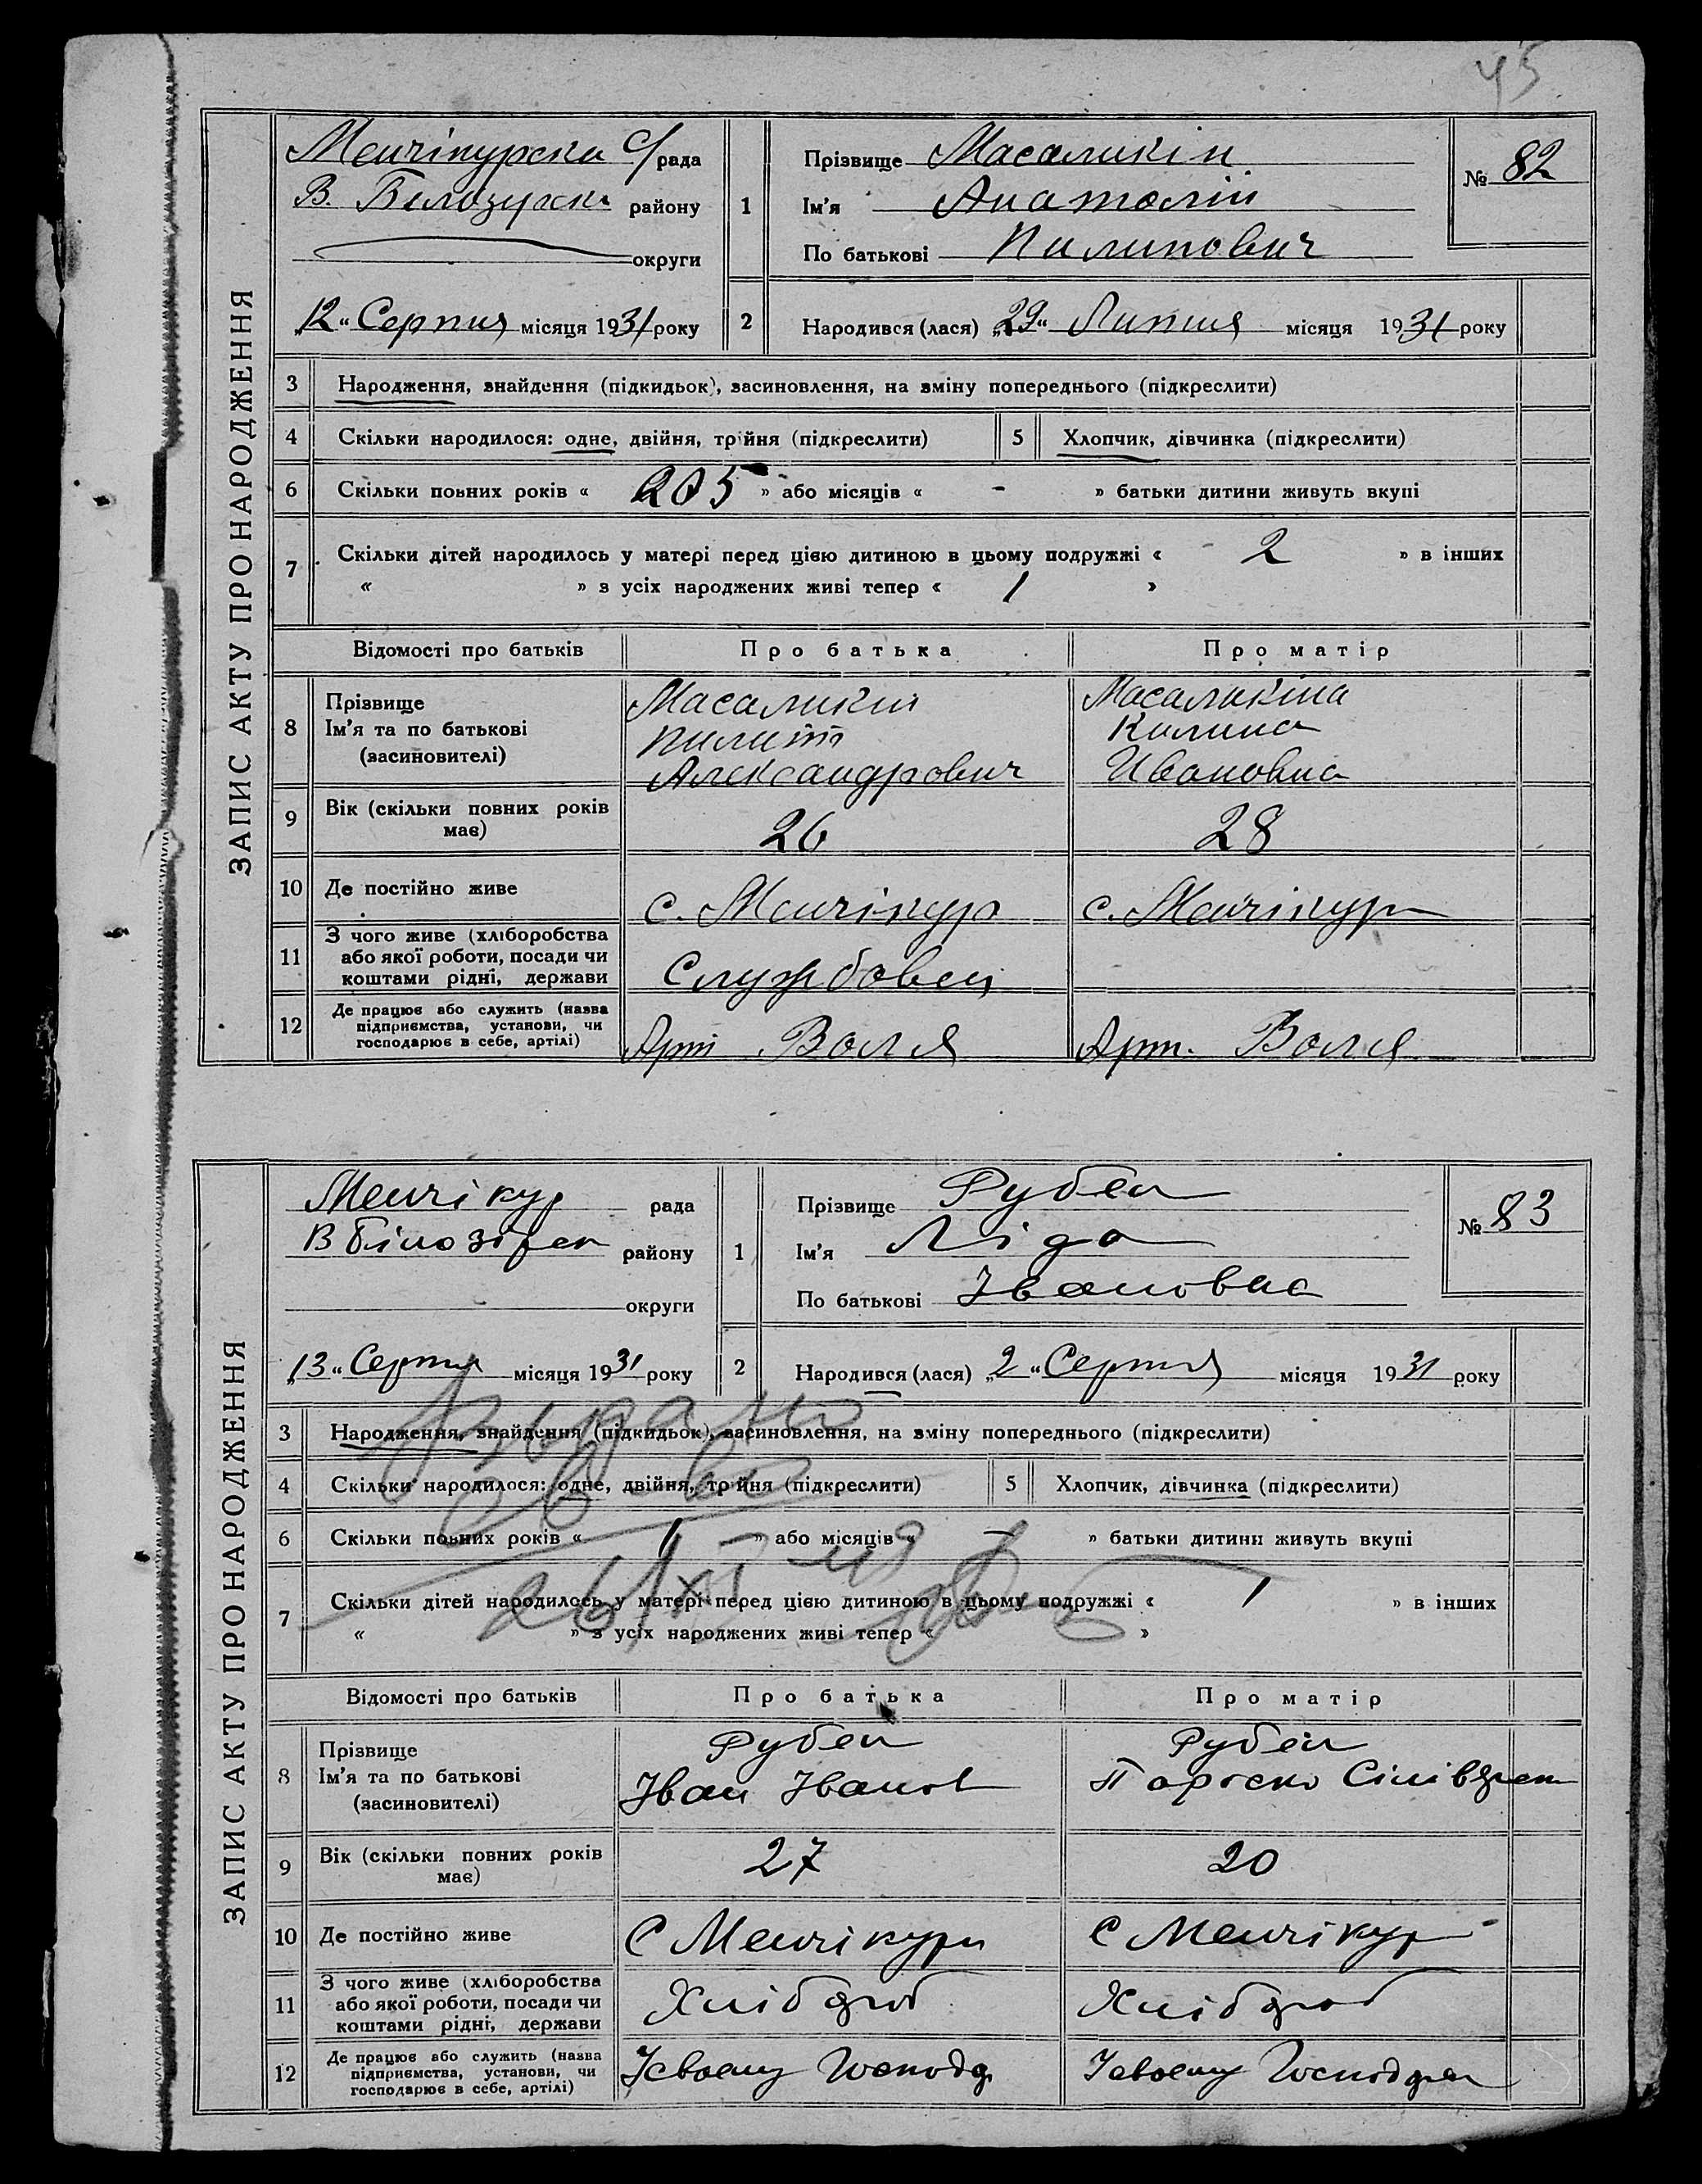 45
ЗАПИС АКТУ ПРО НАРОДЖЕННЯ
Менчікурска С/рада
В. Білозірски району
округи
„12“ Серпня місяця 1931 року
1
Прізвище Масаликін
Ім'я Анатолій
По батькові Пилипович
№ 82
2 Народився (лася) „29“ Липня місяця 1931 року
3 Народження, знайдення (підкидьок), засиновлення, на зміну попереднього (підкреслити)
4 Скільки народилося: одне, двійня, трійня (підкреслити) 5 Хлопчик, дівчинка (підкреслити)
6 Скільки повних років « 5 » або місяців « - » батьки дитини живуть вкупі
7 Скільки дітей народилось у матері перед цією дитиною в цьому подружжі « 2 » в інших
« » з усіх народжених живі тепер « 1 »
Відомості про батьків Про батька Про матір
8 Прізвище Ім'я та по батькові (засновителі)
Масаликін Пилип Александрович
Масаликіна Килина Ивановна
9 Вік (скільки повних років має) 26 28
10 Де постійно живе с. Менчікур с. Менчікур
11 З чого живе (хліборобства або якої роботи, посади чи коштами рідні, держави Службовец
12 Де працює або служить (назва підприємства, установи, чи господарює в себе, артілі) Арт Воля Арт. Воля
ЗАПИС АКТУ ПРО НАРОДЖЕННЯ
Менчікур рада
В Білозірск району
округи
„13“ Серпня місяця 1931 року
1
Прізвище Рубен
Ім'я Ліда
По батькові Івановна
№ 83
2 Народився (лася) „2“ Серпня місяця 1931 року
3 Народження, знайдення (підкидьок), засиновлення, на зміну попереднього (підкреслити)
4 Скільки народилося: одне, двійня, трійня (підкреслити) 5 Хлопчик, дівчинка (підкреслити)
6 Скільки повних років « 1 » або місяців « — » батьки дитини живуть вкупі
7 Скільки дітей народилось у матері перед цією дитиною в цьому подружжі « 1 » в інших
« » з усіх народжених живі тепер « »
Відомості про батьків Про батька Про матір
8 Прізвище Ім'я та по батькові (засиновителі)
Рубен Іван Іванов
Рубен Параско
9 Вік (скільки повних років має) 27 20
10 Де постійно живе С Менчікури С Менчікур
11 З чого живе (хліборобства або якої роботи, посади чи коштами рідні, держави Хлібороб Хлібороб
12 Де працює або служить (назва підприємства, установи, чи господарює в себе, артілі) У своему Господ У своему Господар